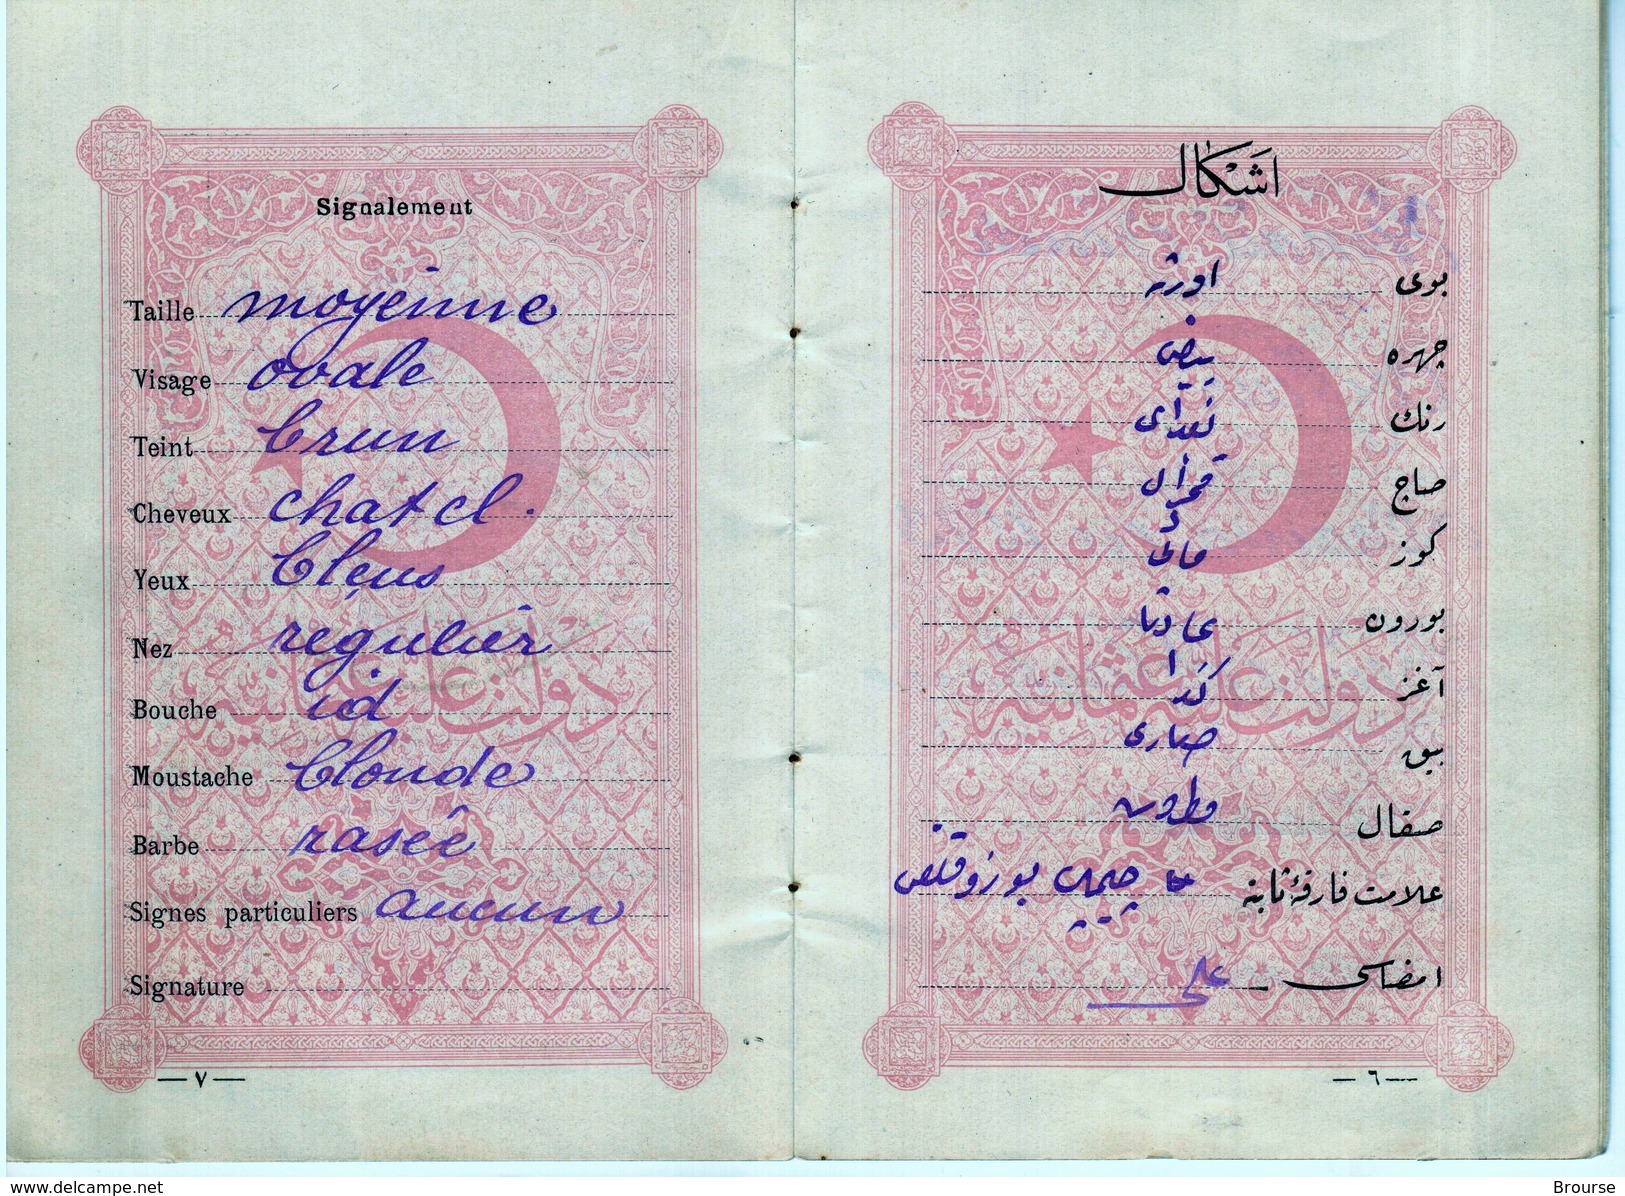 Signalement
Taille moyenne
Visage ovale
Teint brun
Cheveux chatel.
Yeux bleus
Nez regulier
Bouche id
Moustache blonde
Barbe rasée
Signes particuliers aucun
Signature
— ٧ —
اشكال
بوى اورته
چهره بيضى
رنك بغداى
صاج قمرال
كوز مائى
بورون عادتا
آغز كذا
بيق صارى
صقال مطروش
علامت فارقهٔ ثابته
امضاسى على
— ٦ —
دولت عليه عثمانيه
دولت عليه عثمانيه
www.delcampe.net
Brourse